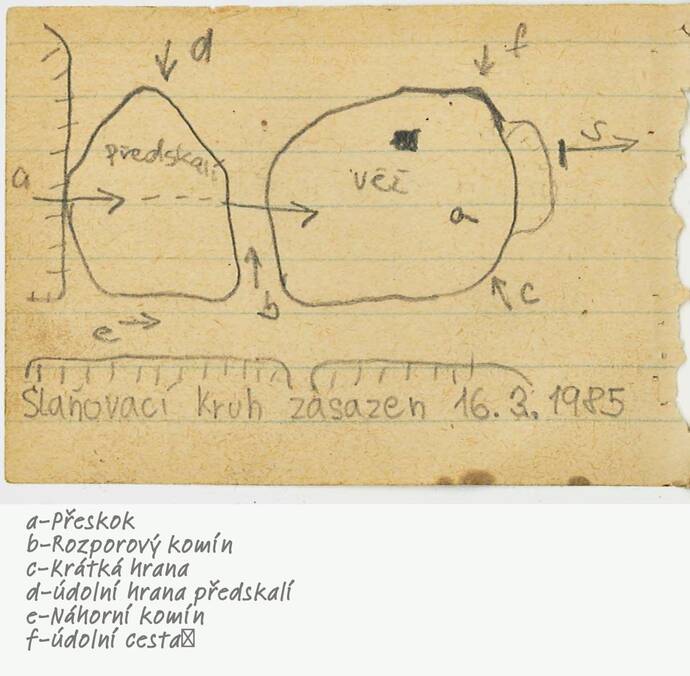 d
f
S
předskalí
věž
a
a
b
c
e
Slaňovací kruh zasazen 16.3.1985
a-Přeskok
b-Rozporový komín
c-Krátká hrana
d-údolní hrana předskalí
e-Náhorní komín
f-údolní cesta